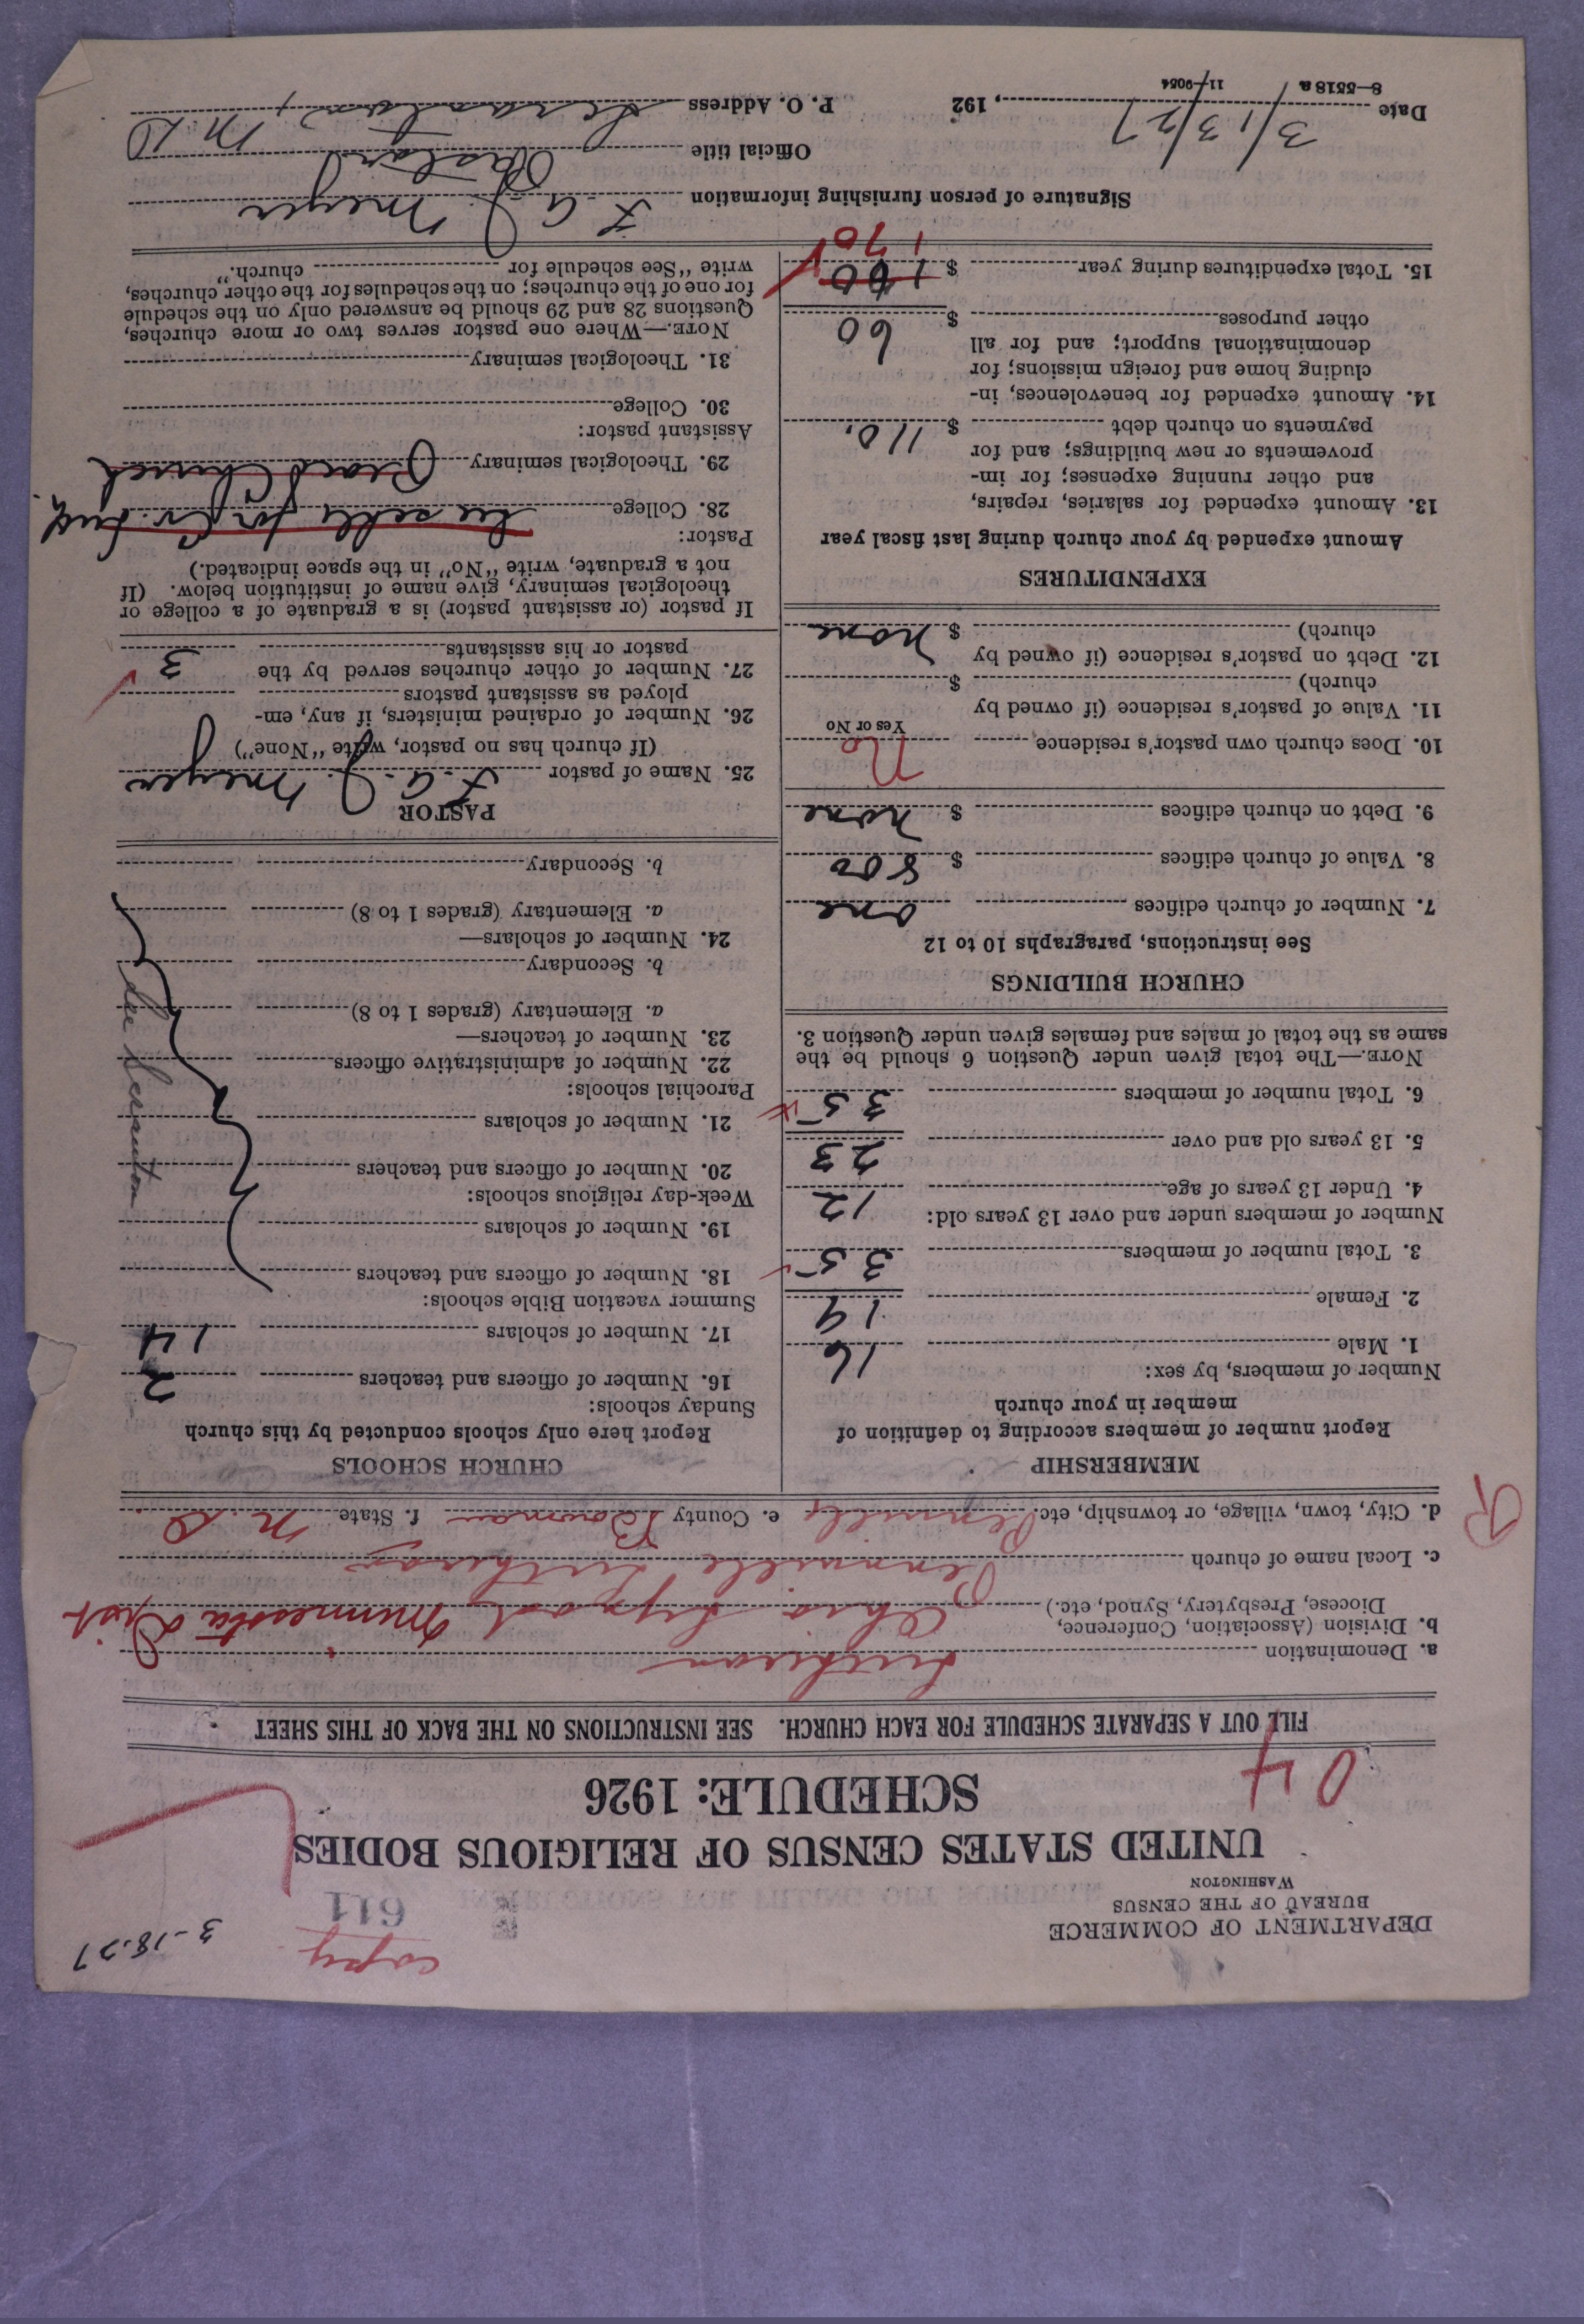 DEPARTMENT OF COMMERCE
BUREAU OF THE CENSUS
WASHINGTON
copy
611
3-18-27
UNITED STATES CENSUS OF RELIGIOUS BODIES
SCHEDULE: 1926
04
FILL OUT A SEPARATE SCHEDULE FOR EACH CHURCH. SEE INSTRUCTIONS ON THE BACK OF THIS SHEET
a. Denomination Lutheran
b. Division (Association, Conference, Diocese, Presbytery, Synod, etc.) Ohio Synod Minnesota Dist
c. Local name of church Pennville Lutheran
d. City, town, village, or township, etc. Pennville e. County Bowman f. State N. D.
R
MEMBERSHIP
Report number of members according to definition of
member in your church
Number of members, by sex:
1. Male 16
2. Female 19
3. Total number of members 35
Number of members under and over 13 years old:
4. Under 13 years of age 12
5. 13 years old and over 23
6. Total number of members 35
NOTE.—The total given under Question 6 should be the
same as the total of males and females given under Question 3.
CHURCH BUILDINGS
See instructions, paragraphs 10 to 12
7. Number of church edifices one
8. Value of church edifices $ 800
9. Debt on church edifices $ none
10. Does church own pastor's residence No
Yes or No
11. Value of pastor's residence (if owned by
church) $
12. Debt on pastor's residence (if owned by
church) $ none
EXPENDITURES
Amount expended by your church during last fiscal year
13. Amount expended for salaries, repairs,
and other running expenses; for im-
provements or new buildings; and for
payments on church debt $ 110.
14. Amount expended for benevolences, in-
cluding home and foreign missions; for
denominational support; and for all
other purposes $ 60
15. Total expenditures during year $ 100
170
CHURCH SCHOOLS
Report here only schools conducted by this church
Sunday schools:
16. Number of officers and teachers 2
17. Number of scholars 14
Summer vacation Bible schools:
18. Number of officers and teachers
19. Number of scholars
Week-day religious schools:
20. Number of officers and teachers
21. Number of scholars
Parochial schools:
22. Number of administrative officers
23. Number of teachers—
a. Elementary (grades 1 to 8)
b. Secondary
24. Number of scholars—
a. Elementary (grades 1 to 8)
b. Secondary
PASTOR
25. Name of pastor F. A. J. Meyer
(If church has no pastor, write "None")
26. Number of ordained ministers, if any, em-
ployed as assistant pastors
27. Number of other churches served by the
pastor or his assistants 3
If pastor (or assistant pastor) is a graduate of a college or
theological seminary, give name of institution below. (If
not a graduate, write "No" in the space indicated.)
Pastor:
28. College See sche for Ev. Luth.
29. Theological seminary Peace Church
Assistant pastor:
30. College
31. Theological seminary
NOTE.—Where one pastor serves two or more churches,
Questions 28 and 29 should be answered only on the schedule
for one of the churches; on the schedules for the other churches,
write "See schedule for church."
Signature of person furnishing information F. A. J. Meyer
Official title Pastor
Date 3/13/27, 192 P. O. Address N. D.
8—5518a 11—9054